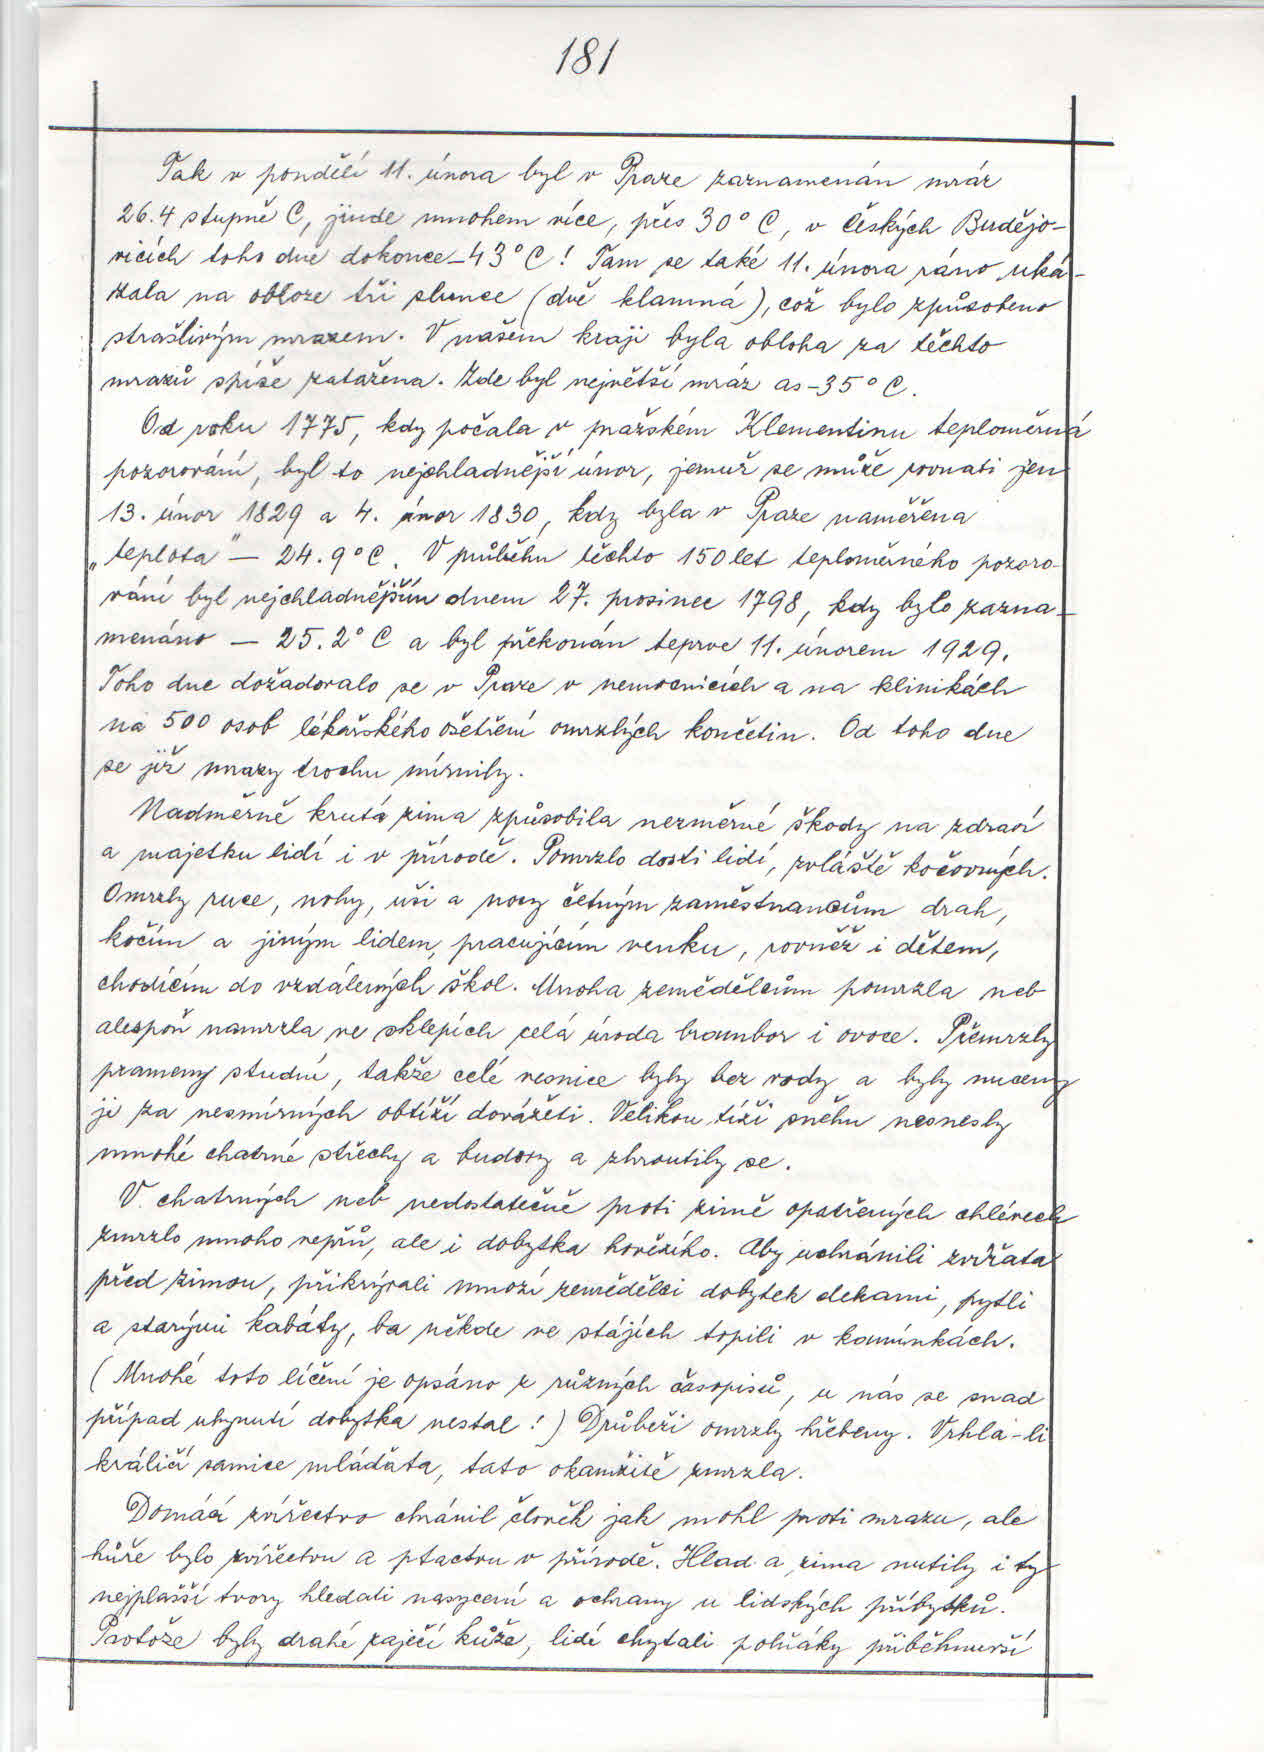 181
Tak v pondělí 11. února byl v Praze zaznamenán mráz
26.4 stupně C, jinde mnohem více, přes 30° C, v Českých Budějo-
vicích toho dne dokonce -43° C! Tam se také 11. února ráno uká-
zala na obloze tři slunce (dvě klamná), což bylo způsobeno
strašlivým mrazem. V našem kraji byla obloha za těchto
mrazů spíše zatažena. Zde byl největší mráz as -35° C.
Od roku 1775, kdy počala v pražském Klementinu teploměrná
pozorování, byl to nejchladnější únor, jemuž se může rovnati jen
13. únor 1829 a 4. únor 1830, kdy byla v Praze naměřena
„teplota" — 24.9° C. V průběhu těchto 150 let teploměrného pozoro-
vání byl nejchladnějším dnem 27. prosinec 1798, kdy bylo zazna-
menáno — 25.2° C a byl překonán teprve 11. únorem 1929.
Toho dne dožadovalo se v Praze v nemocnicích a na klinikách
na 500 osob lékařského ošetření omrzlých končetin. Od toho dne
se již mrazy trochu mírnily.
Nadměrně krutá zima způsobila nezměrné škody na zdraví
a majetku lidí i v přírodě. Pomrzlo dosti lidí, zvláště kočovných.
Omrzly ruce, nohy, uši a nosy četným zaměstnancům drah,
kočím a jiným lidem, pracujícím venku, rovněž i dětem,
chodícím do vzdálených škol. Mnoha zemědělcům pomrzla neb
alespoň namrzla ve sklepích celá úroda brambor i ovoce. Přemrzly
prameny studní, takže celé vesnice byly bez vody a byly nuceny
ji za nesmírných obtíží dovážeti. Velikou tíži sněhu nesnesly
mnohé chatrné střechy a budovy a zhroutily se.
V chatrných neb nedostatečně proti zimě opatřených chlévech
zmrzlo mnoho vepřů, ale i dobytka hovězího. Aby uchránili zvířata
před zimou, přikrývali mnozí zemědělci dobytek dekami, pytli
a starými kabáty, ba někde ve stájích topili v kamínkách.
(Mnohé toto líčení je opsáno z různých časopisů, u nás se snad
případ uhynutí dobytka nestal!) Drůbeži omrzly hřebeny. Vrhla-li
králičí samice mláďata, tato okamžitě zmrzla.
Domácí zvířectvo chránil člověk jak mohl proti mrazu, ale
hůře bylo zvířectvu a ptactvu v přírodě. Hlad a zima nutily i ty
nejplašší tvory hledati nasycení a ochrany u lidských příbytků.
Protože byly drahé zaječí kůže, lidé chytali polňáky přiběhnuvší